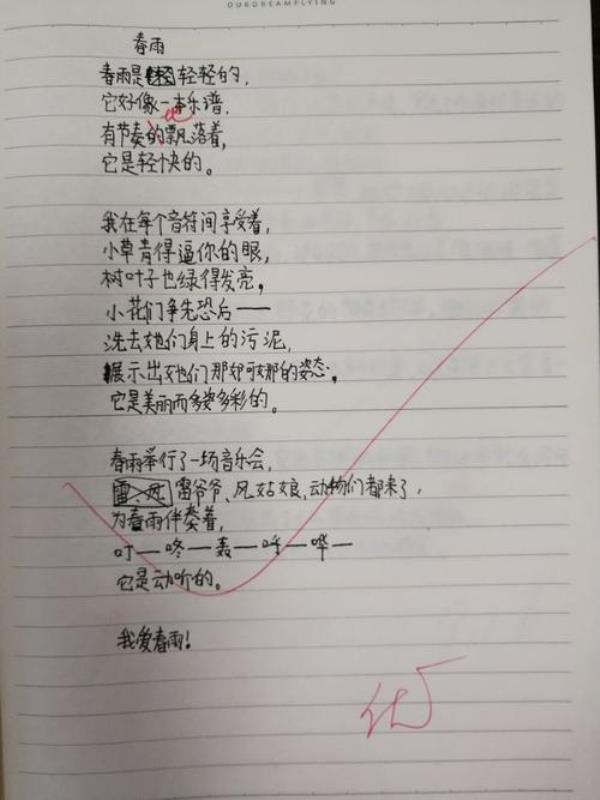 OURDREAMFLYING
春雨
春雨是轻轻的，
它好像一本乐谱，
地
有节奏的飘落着，
它是轻快的。
我在每个音符间享受着，
小草青得逼你的眼，
树叶子也绿得发亮，
小花们争先恐后——
洗去她们身上的污泥，
展示出她们那婀娜的姿态。
它是美丽而多姿多彩的。
春雨举行了一场音乐会，
雷爷爷、风姑娘、动物们都来了，
为春雨伴奏着，
叮—咚—轰—呼—哗—
它是动听的。
我爱春雨！
优